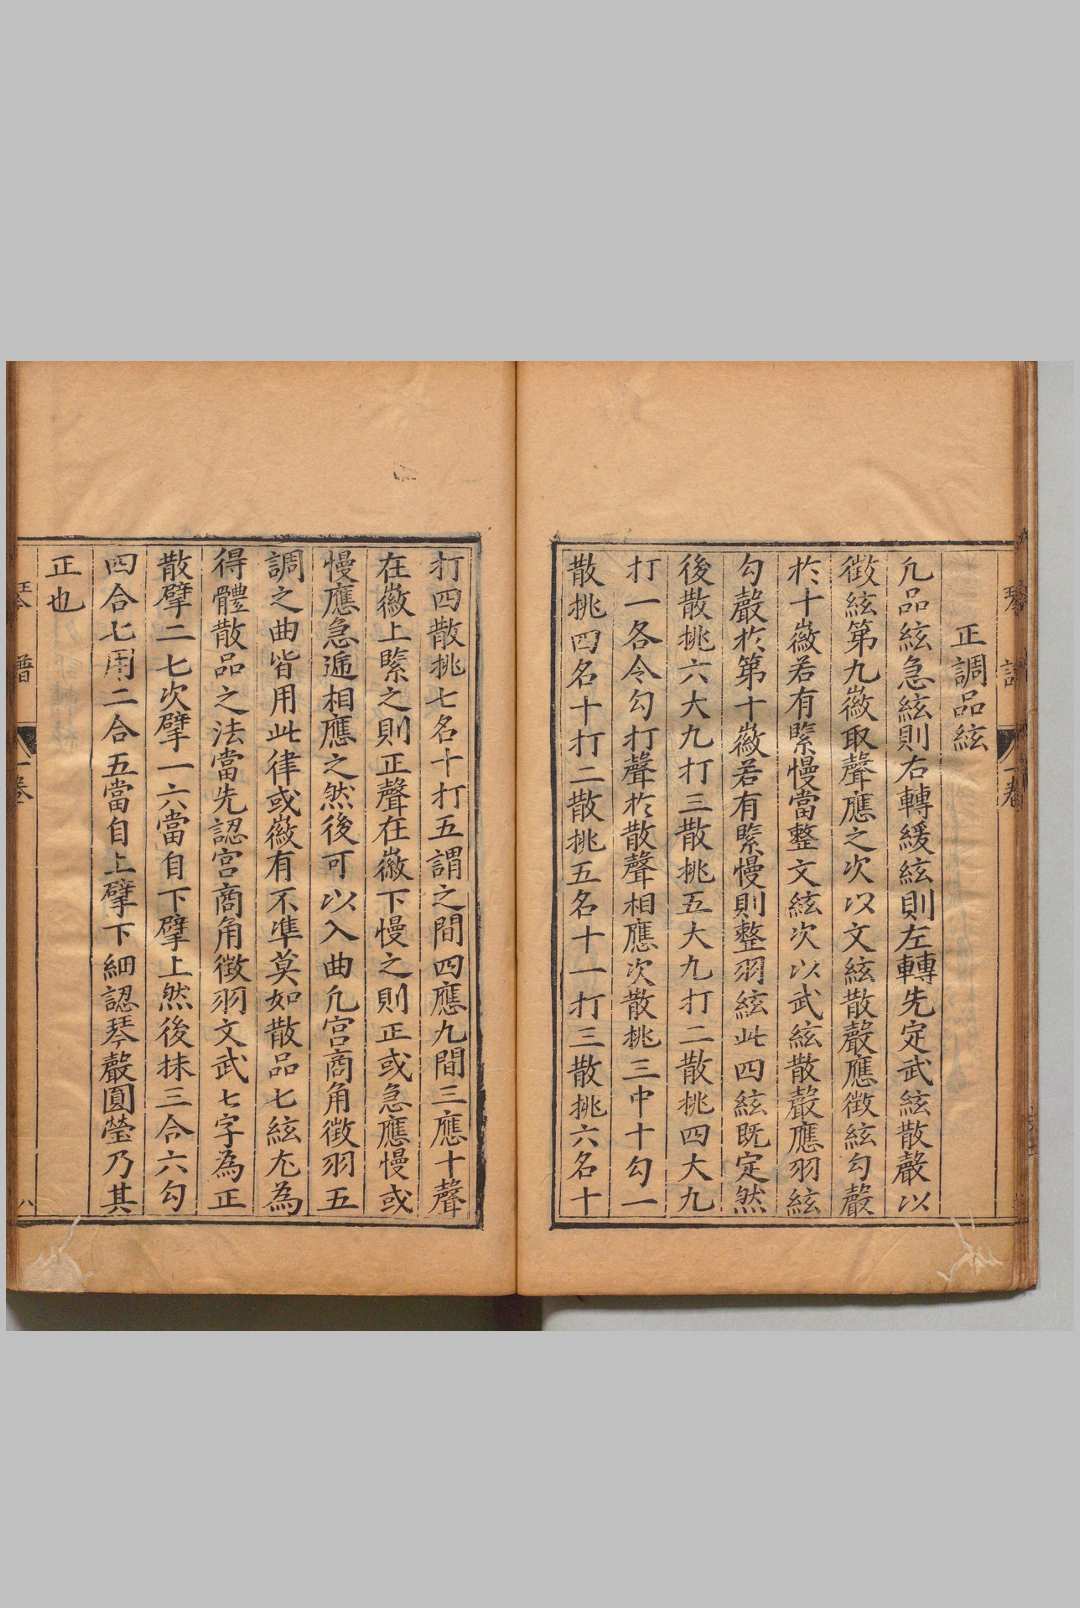 正調品絃
凢品絃急絃則右轉緩絃則左轉先定武絃散聲以
徵絃第九徽取聲應之次以文絃散聲應徵絃勾聲
扵十徽若有緊慢當整文絃次以武絃散聲應羽絃
勾聲扵第十徽若有緊慢則整羽絃此四絃既定然
後散挑六大九打三散挑五大九打二散挑四大九
打一各令勾打聲扵散聲相應次散挑三中十勾一
散挑四名十打二散挑五名十一打三散挑六名十
打四散挑七名十打五謂之間四應九間三應十聲
在徽上緊之則正聲在徽下慢之則正或急應慢或
慢應急遞相應之然後可以入曲凢宮商角徵羽五
調之曲皆用此律或徽有不準莫如散品七絃尤為
得體散品之法當先認宮商角徵羽文武七字為正
散擘二七次擘一六當自下擘上然後抹三合六勾
四合七用二合五當自上擘下細認琴聲圓瑩乃其
正也
譜
一卷
八